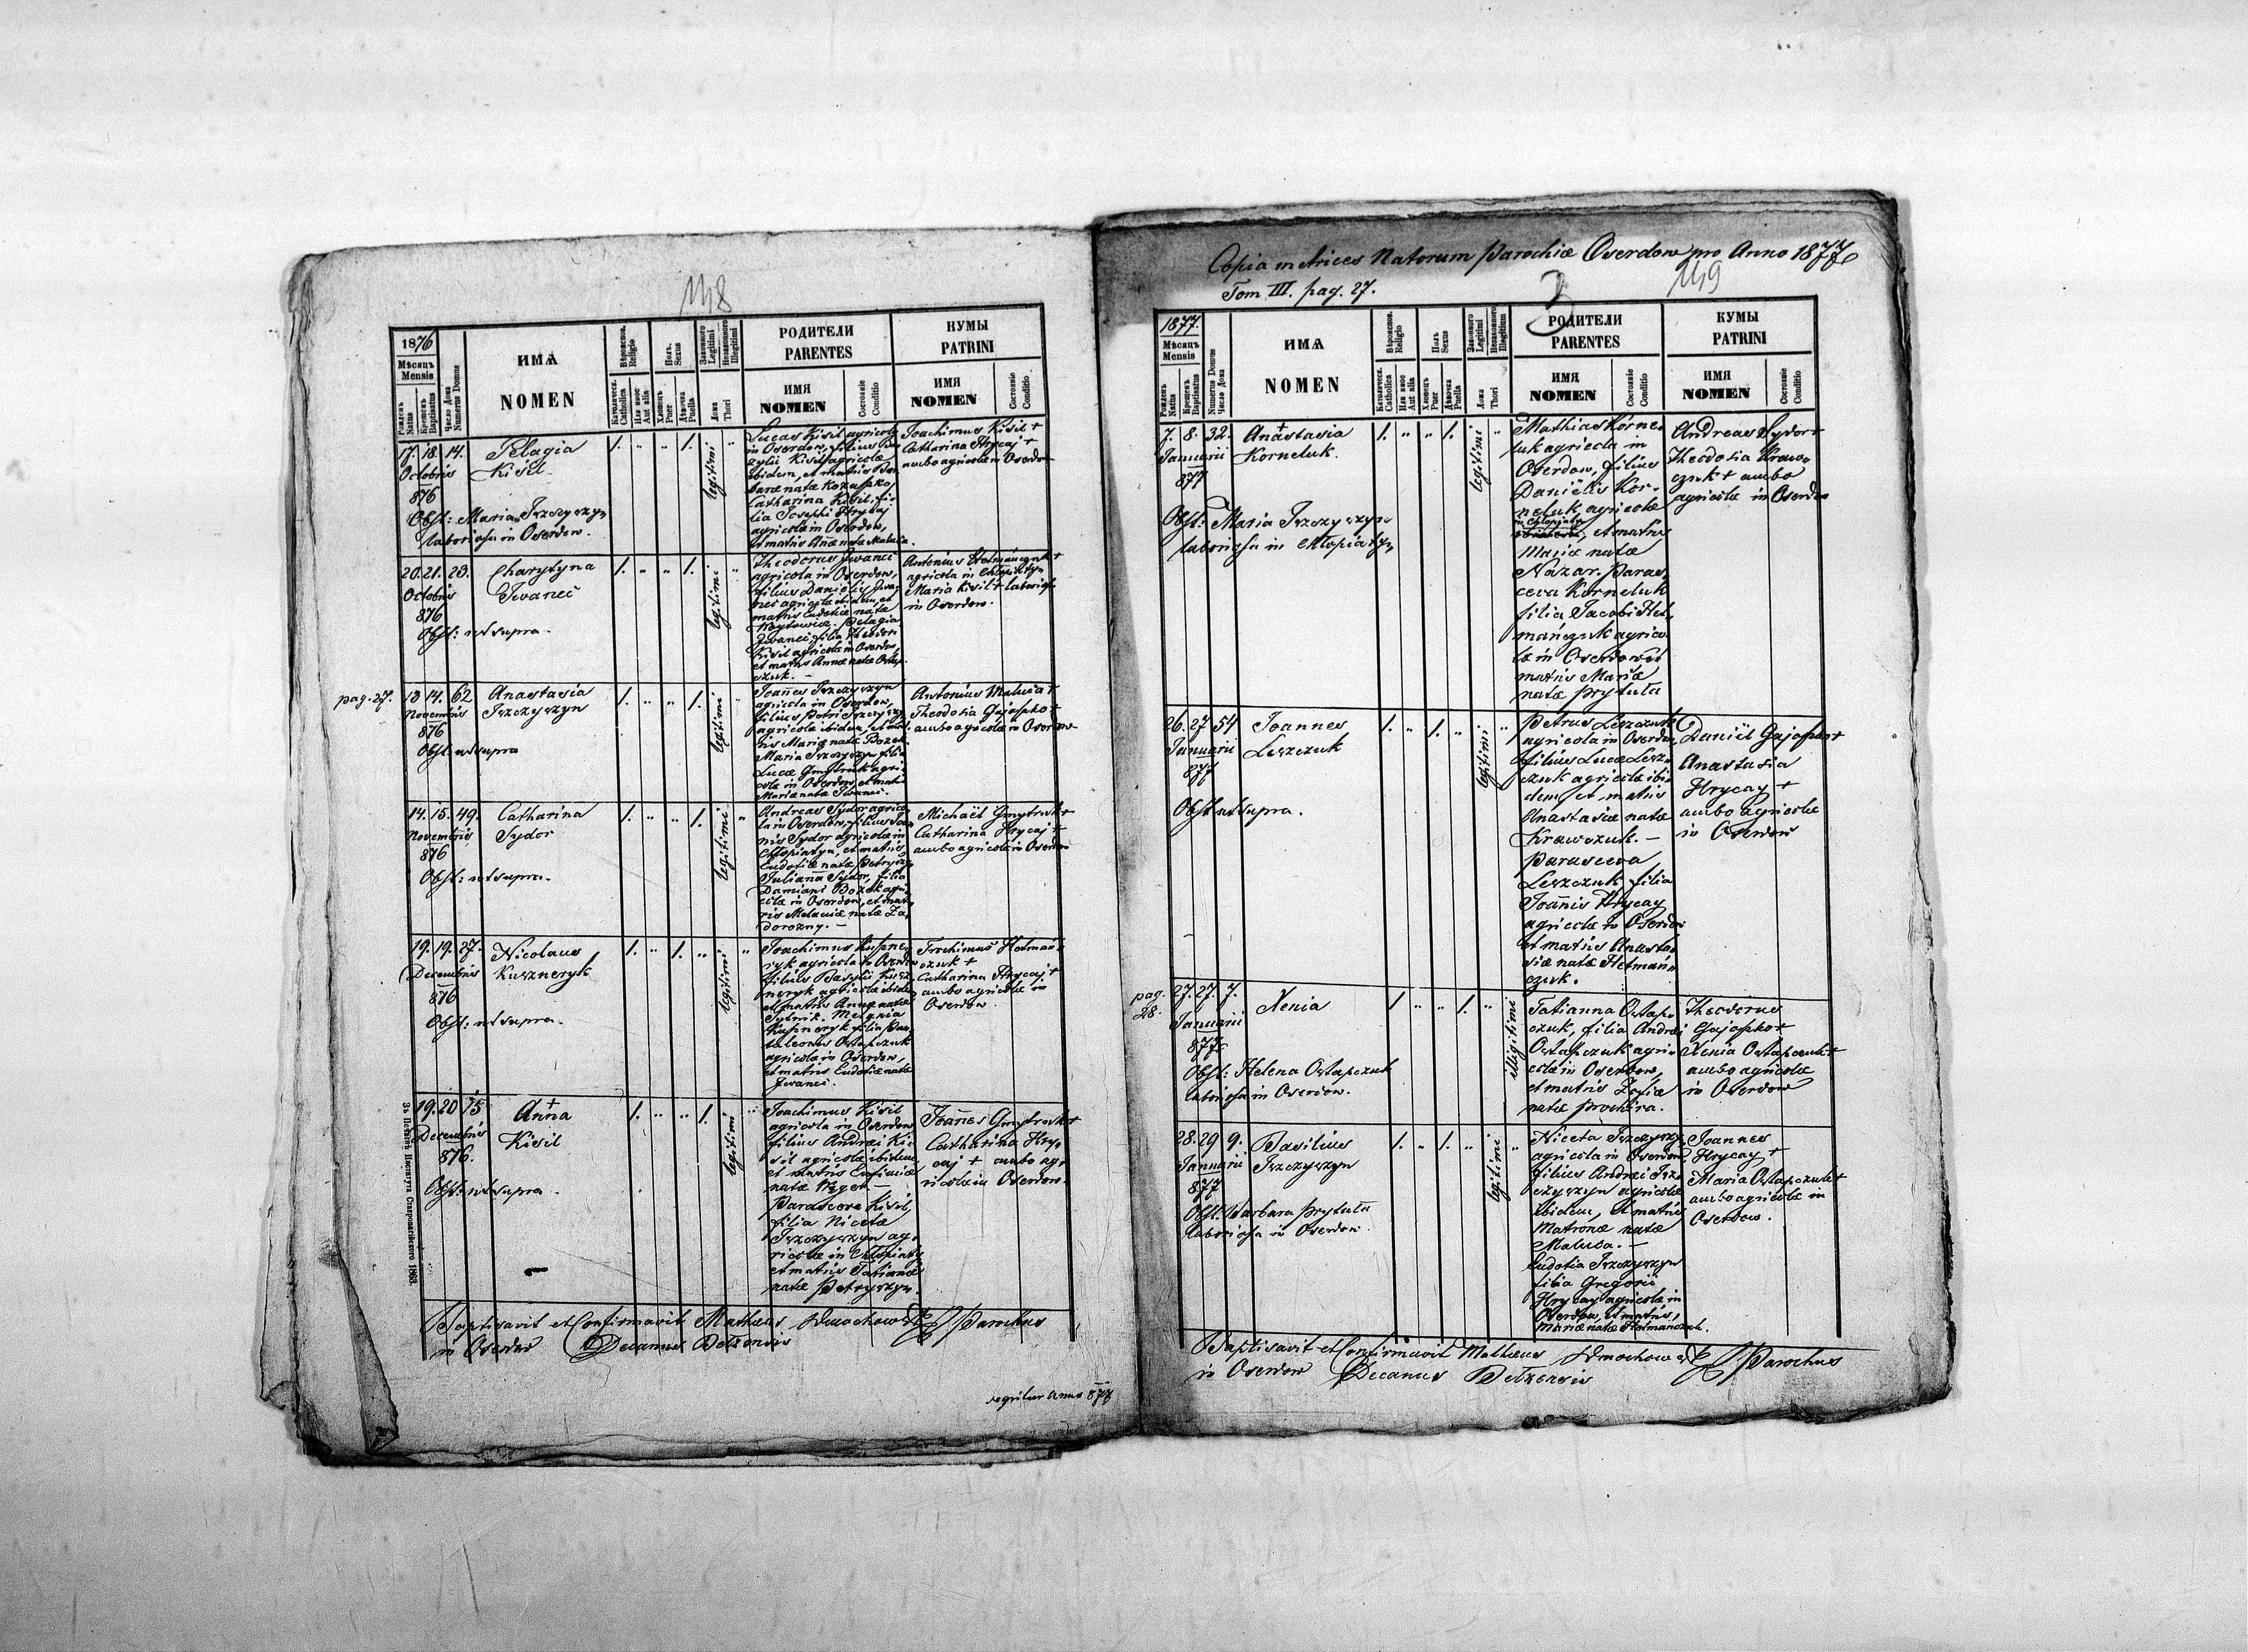 148
1876
Мѣсяцъ
Mensis
Рожденъ
Natus
Крещенъ
Baptisatus
Число Дома
Numerus Domus
ИМѦ
NOMEN
Вѣроиспов.
Religio
Католическ.
Catholica
Или иное
Aut alia
Полъ
Sexus
Хлопецъ
Puer
Дѣвочка
Puella
Законного
Legitimi
Незаконного
Illegitimi
Ложа
Thori
РОДИТЕЛИ
PARENTES
ИМЯ
NOMEN
Состояніе
Conditio
КУМЫ
PATRINI
ИМЯ
NOMEN
Состояніе
Conditio
17. 18. 14.
Octobris
876
Pelagia
Kisil
Obst: Maria Trzczyszyn
laboriosa in Oserdow.
1. " " 1.
legitimi
Lucas Kisil agricola
in Oserdow, filius Ba-
zylii Kisil agricolae
ibidem, et matris Bar-
barae natae Kozaszko
Catharina Kisil, fi-
lia Josephi Hrycaj
agricolae in Oserdow,
et matris Annae natae Maluca.
Joachimus Kisil +
Catharina Hrycaj +
ambo agricolae in Oserdow
20. 21. 23.
Octobris
876
Charytyna
Iwanec
Obst: ut supra.
1. " " 1.
legitimi
Theodorus Iwanec
agricola in Oserdow,
filius Danielis Iwa-
nec agricolae ibidem, et
matris Eudociae natae
Woytowicz. Pelagia
Iwanec filia Theodori
Kisil agricolae in Oserdow,
et matris Annae natae Ostap-
czuk.
Antonius Hetmańczuk +
agricola in Chłopiatyn
Maria Kisil + laboriosa
in Oserdow.
pag. 27.
13 14. 62
Novembris
876
Anastasia
Trzczyszyn
Obst: ut supra
1. " " 1.
legitimi
Joannes Trzczyszyn
agricola in Oserdow,
filius Petri Trzczyszyn
agricolae ibidem, et mat-
ris Mariae natae Bozek
Maria Trzczyszyn filia
Lucae Gmytruk agri-
colae in Oserdow, et matris
Mariae natae Iwanec.
Antonius Maluca +
Theodosia Gajaszko +
ambo agricolae in Oserdow
14. 15. 49.
Novembris
876
Catharina
Sydor
Obst: ut supra.
1. " " 1.
legitimi
Andreas Sydor agrico-
la in Oserdow, filius Joan-
nis Sydor agricolae in
Chłopiatyn, et matris
Eudociae natae Petryszyn
Julianna Sydor, filia
Damiani Bozek agri-
colae in Oserdow, et mat-
ris Melaniae natae Za-
dorozny.
Michaël Gmytruk +
Catharina Hrycaj +
ambo agricolae in Oserdow
19. 19. 27.
Decembris
876
Nicolaus
Kuszneryk
Obst: ut supra.
1. " 1. "
legitimi
Joachimus Kuszne-
ryk agricola in Oserdow
filius Basylii Kusz-
neryk agricolae ibidem
et matris Annae natae
Sytnik.
Kuszneryk filia Pan-
taleonis Ostapczuk
agricolae in Oserdow,
et matris Eudociae natae
Iwanec.
Trochimus Hetmań-
czuk +
Catharina Hrycaj +
ambo agricolae in
Oserdow.
19. 20 15
Decembris
876.
Anna
Kisil
Obst: ut supra.
1. " " 1.
legitimi
Joachimus Kisil
agricola in Oserdow
filius Andrei Ki-
sil agricolae ibidem
et matris Eufimiae
natae Wger
Parasceva Kisil,
filia Nicetae
Trzczyszyn ag-
ricolae in Chłopiatyn
et matris Tatianae
natae Petryszyn.
Joannes Gmytruk +
Catharina Hry-
caj + ambo ag-
ricolae in Oserdow.
Baptisavit et Confirmavit Matheus Parochus
in Oserdow Decanus Bełzensis
sequitur Anno 877
За Печатнѣ Института Ставропигійского 1863.
Copia metrices Natorum Parochiae Oserdow pro Anno 1877
Tom III. pag. 27.
3
149
1877.
Мѣсяцъ
Mensis
Рожденъ
Natus
Крещенъ
Baptisatus
Numerus Domus
Число Дома
ИМѦ
NOMEN
Вѣроиспов.
Religio
Католическ.
Catholica
Или иное
Aut alia
Полъ
Sexus
Хлопецъ
Puer
Дѣвочка
Puella
Законного
Legitimi
Незаконного
Illegitimi
Ложа
Thori
РОДИТЕЛИ
PARENTES
ИМЯ
NOMEN
Состояніе
Conditio
КУМЫ
PATRINI
ИМЯ
NOMEN
Состояніе
Conditio
7. 8. 32.
Januarii
877
Anastasia
Korneluk.
Obst: Maria Trzczyszyn
laboriosa in Chłopiatyn
1. " " 1.
legitimi
Mathias Korne-
luk agricola in
Oserdow, filius
Danielis Kor-
neluk agricolae
in Chłopiatyn
, et matris
Mariae natae
Nazar. Paras-
ceva Korneluk
filia Jacobi Het-
mańczuk agrico-
lae in Oserdow et
matris Mariae
natae Prytuła
Andreas Sydor +
Theodosia Kraw-
czuk + ambo
agricolae in Oserdow
26. 27 54
Januarii
877
Joannes
Leszczuk
Obst ut supra.
1. " 1. "
legitimi
Petrus Leszczuk
agricola in Oserdow,
filius Lucae Lesz-
czuk agricolae ibi-
dem, et matris
Anastasiae natae
Krawczuk.
Parasceva
Leszczuk filia
Joannis Hrycay
agricolae in Oserdow
et matris Anasta-
siae natae Hetmań-
czuk.
Daniil Gajaszko +
Anastasia
Hrycay +
ambo agricolae
in Oserdow
pag.
28.
27. 27. 7.
Januarii
877
Xenia
Obst: Helena Ostapczuk
laboriosa in Oserdow.
1 " " 1.
illegitimi
Tatianna Ostap-
czuk, filia Andrei
Ostapczuk agri-
colae in Oserdow,
et matris Zofiae
natae Prochira.
Theodorus
Gajaszko +
Xenia Ostapczuk +
ambo agricolae
in Oserdow
28. 29 9.
Januarii
877
Basilius
Trzczyszyn
Obst: Barbara Prytuła
laboriosa in Oserdow.
1. " 1. "
legitimi
Niceta Trzczyszyn
agricola in Oserdow,
filius Andrei Trz-
czyszyn agricolae
ibidem, et matris
Matronae natae
Maluca.
Eudotia Trzczyszyn
filia Gregorii
Hrycay agricolae in
Oserdow, et matris,
Mariae natae Hetmańczuk.
Joannes
Hrycay +
Maria Ostapczuk +
ambo agricolae in
Oserdow.
Baptisavit et Confirmavit Matheus Parochus
in Oserdow Decanus Bełzensis